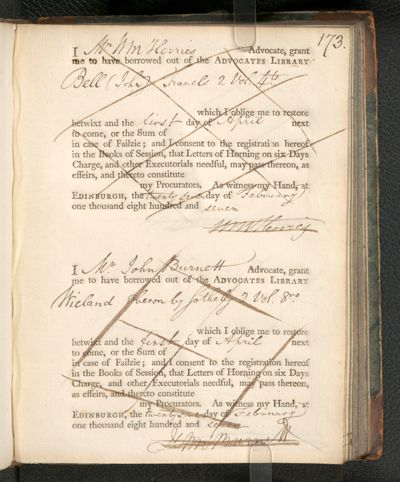 173.
I Mr Wm Herries Advocate, grant
me to have borrowed out of the ADVOCATES LIBRARY
Bell (John) Travels 2 Vol. 4to
which I oblige me to restore
betwixt and the first day of April next
to come, or the Sum of
in case of Failzie; and I consent to the registration hereof
in the Books of Session, that Letters of Horning on six Days
Charge, and other Executorials needful, may pass thereon, as
effeirs, and thereto constitute
my Procurators. As witness my Hand, at
EDINBURGH, the twenty seven day of February
one thousand eight hundred and seven
Wm Herries
I Mr John Burnett Advocate, grant
me to have borrowed out of the ADVOCATES LIBRARY
Wieland Oberon by Sotheby 2 Vol. 8vo
which I oblige me to restore
betwixt and the first day of April next
to come, or the Sum of
in case of Failzie; and I consent to the registration hereof
in the Books of Session, that Letters of Horning on six Days
Charge, and other Executorials needful, may pass thereon,
as effeirs, and thereto constitute
my Procurators. As witness my Hand, at
EDINBURGH, the twenty seven day of February
one thousand eight hundred and seven
Burnett